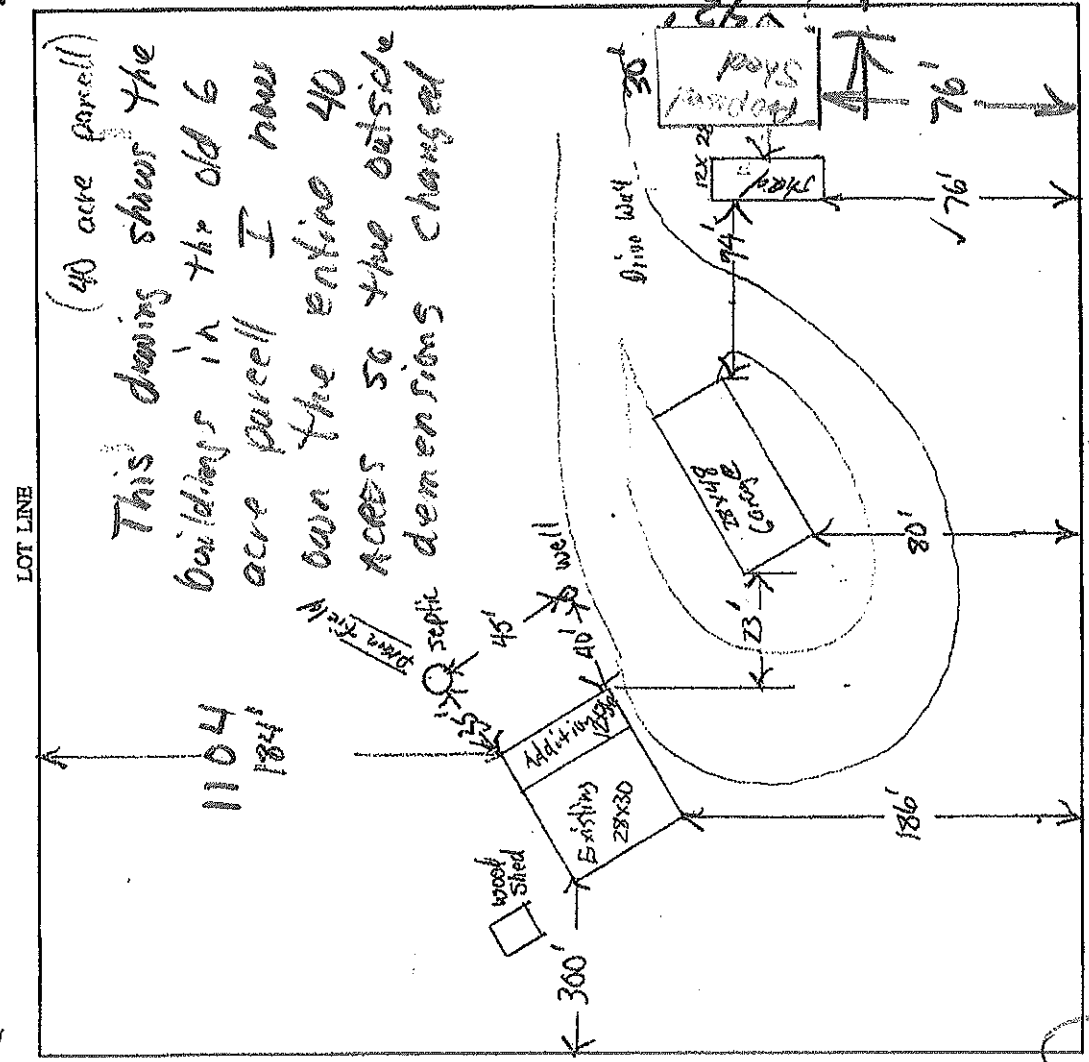 LOT LINE
(40 acre parcell)
This drawing shows the
buildings in the old 6
acre parcell I now
own the entire 40
ACRES so the outside
demensions changed
1104
184'
Drain field
septic
45'
well
40'
25'
Addition
Existing
28x30
wood
shed
300'
186'
23'
Garage
28x48
80'
Drive Way
94'
12x28
76'
30'
Proposed
Shed
42'
76'